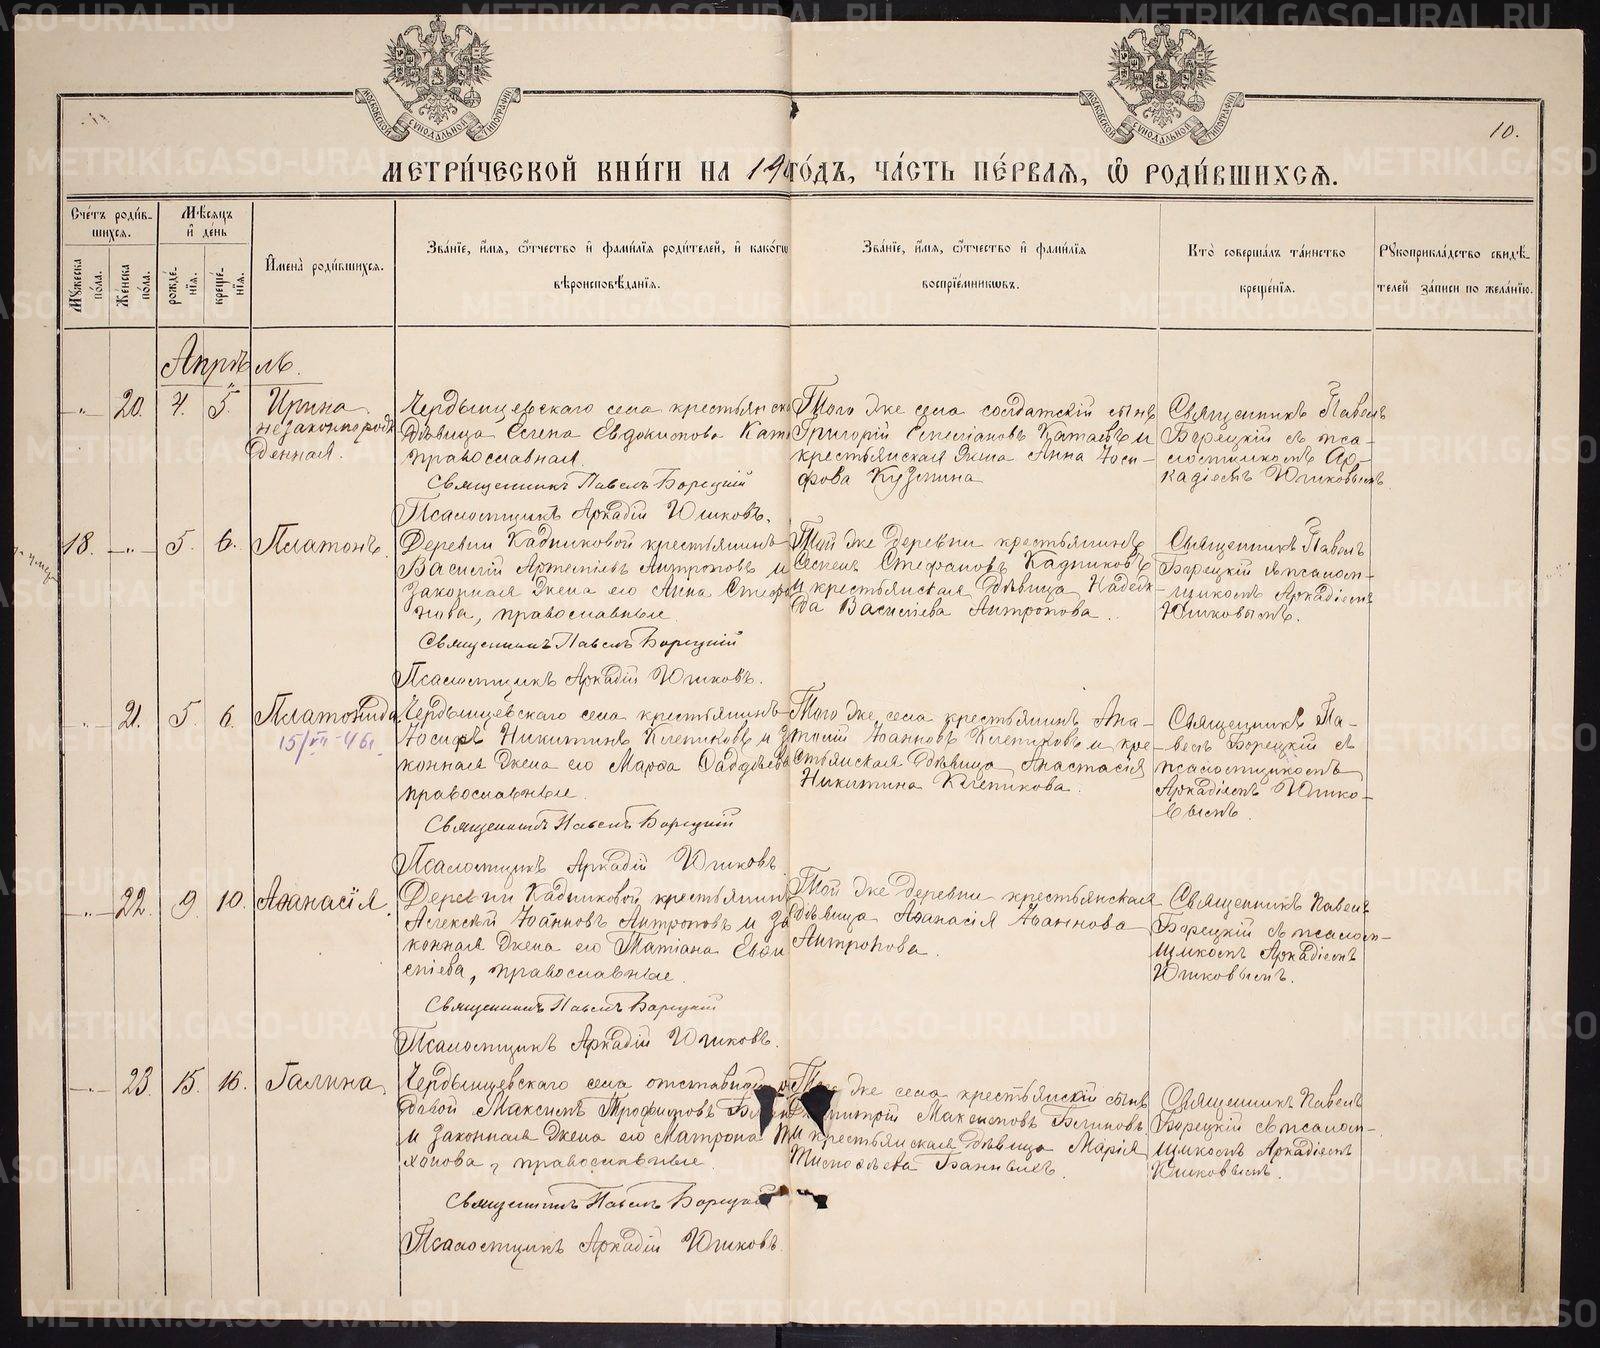 10.
МЕТРИ́ЧЕСКОЙ КНИ́ГИ НА 19 ГО́ДЪ, ЧА́СТЬ ПЕ́РВАѦ, Ѽ РОДИ́ВШИХСѦ.
Сче́тъ роди́в-
шихсѧ.
Мѣсѧцъ
и҆ де́нь
Мꙋжеска
по́ла.
Же́нска
по́ла.
рожде́-
нїѧ.
креще́-
нїѧ.
И҆мена̀ роди́вшихсѧ.
Зва́нїе, и҆́мѧ, ѻ҆́тчество и҆ фами́лїѧ роди́телей, и҆ како́гѡ
вѣроисповѣ́данїѧ.
Зва́нїе, и҆́мѧ, ѻ҆́тчество и҆ фами́лїѧ
воспрїе́мникѡвъ.
Кто̀ соверша́лъ та́инство
креще́нїѧ.
Рꙋкоприкла́дство свидѣ́-
телей за́писи по жела́нїю.
Апрѣль.
-"- 20. 4. 5. Ирина
незаконнорож
денная.
Чердынцевскаго села крестьянска
дѣвица Елена Евдокимова Ката
православная
Священникъ Павелъ Борецкій
Псаломщикъ Аркадій Юшковъ.
Того же села солдатскій сынъ
Григорій Емельяновъ Катаевъ и
крестьянская жена Анна Іоси-
фова Кузмина
Священникъ Павелъ
Борецкій съ пса-
ломщикомъ Ар-
кадіемъ Юшковымъ
18. -"- 5. 6. Платонъ.
Деревни Кадниковой крестьянинъ
Василій Артеміевъ Антроповъ и
законная жена его Анна Стефа
нова, православные
Священникъ Павелъ Борецкій
Псаломщикъ Аркадій Юшковъ.
Той же деревни крестьянинъ
Стефановъ Кадниковъ
и крестьянская дѣвица Надеж-
да Василіева Антропова.
Священникъ Павелъ
Борецкій съ псалом-
щикомъ Аркадіемъ
Юшковымъ.
-"- 21. 5. 6. Платонида
15/VII-46г.
Чердынцевскаго села крестьянинъ
Іосифъ Никитинъ Клепиковъ и за
конная жена его Марѳа Ѳаддѣева
православные.
Священникъ Павелъ Борецкій
Псаломщикъ Аркадій Юшковъ
Того же села крестьянинъ Ана-
толій Іоанновъ Клепиковъ и кре-
стьянская дѣвица Анастасія
Никитина Клепикова.
Священникъ Па-
велъ Борецкій съ
псаломщикомъ
Аркадіемъ Юшко-
вымъ.
-"- 22. 9. 10. Аѳанасія.
Деревни Кадниковой крестьянинъ
Алексѣй Іоанновъ Антроповъ и за
конная жена его Татіана
православные.
Священникъ Павелъ Борецкій
Псаломщикъ Аркадій Юшковъ.
Той же деревни крестьянская
дѣвица Аѳанасія Іоаннова
Антропова.
Священникъ Павелъ
Борецкій съ псалом-
щикомъ Аркадіемъ
Юшковымъ.
-"- 23. 15. 16. Галина.
Чердынцевскаго села отставной
Максимъ Трофимовъ
и законная жена его Матрона
православные.
Священникъ Павелъ Борецкій
Псаломщикъ Аркадій Юшковъ.
Того же села крестьянскій сынъ
Димитрій Максимовъ Блиновъ
и крестьянская дѣвица Марія
Тимоѳѣева
Священникъ Павелъ
Борецкій съ псалом-
щикомъ Аркадіемъ
Юшковымъ.
METRIKI.GASO-URAL.RU